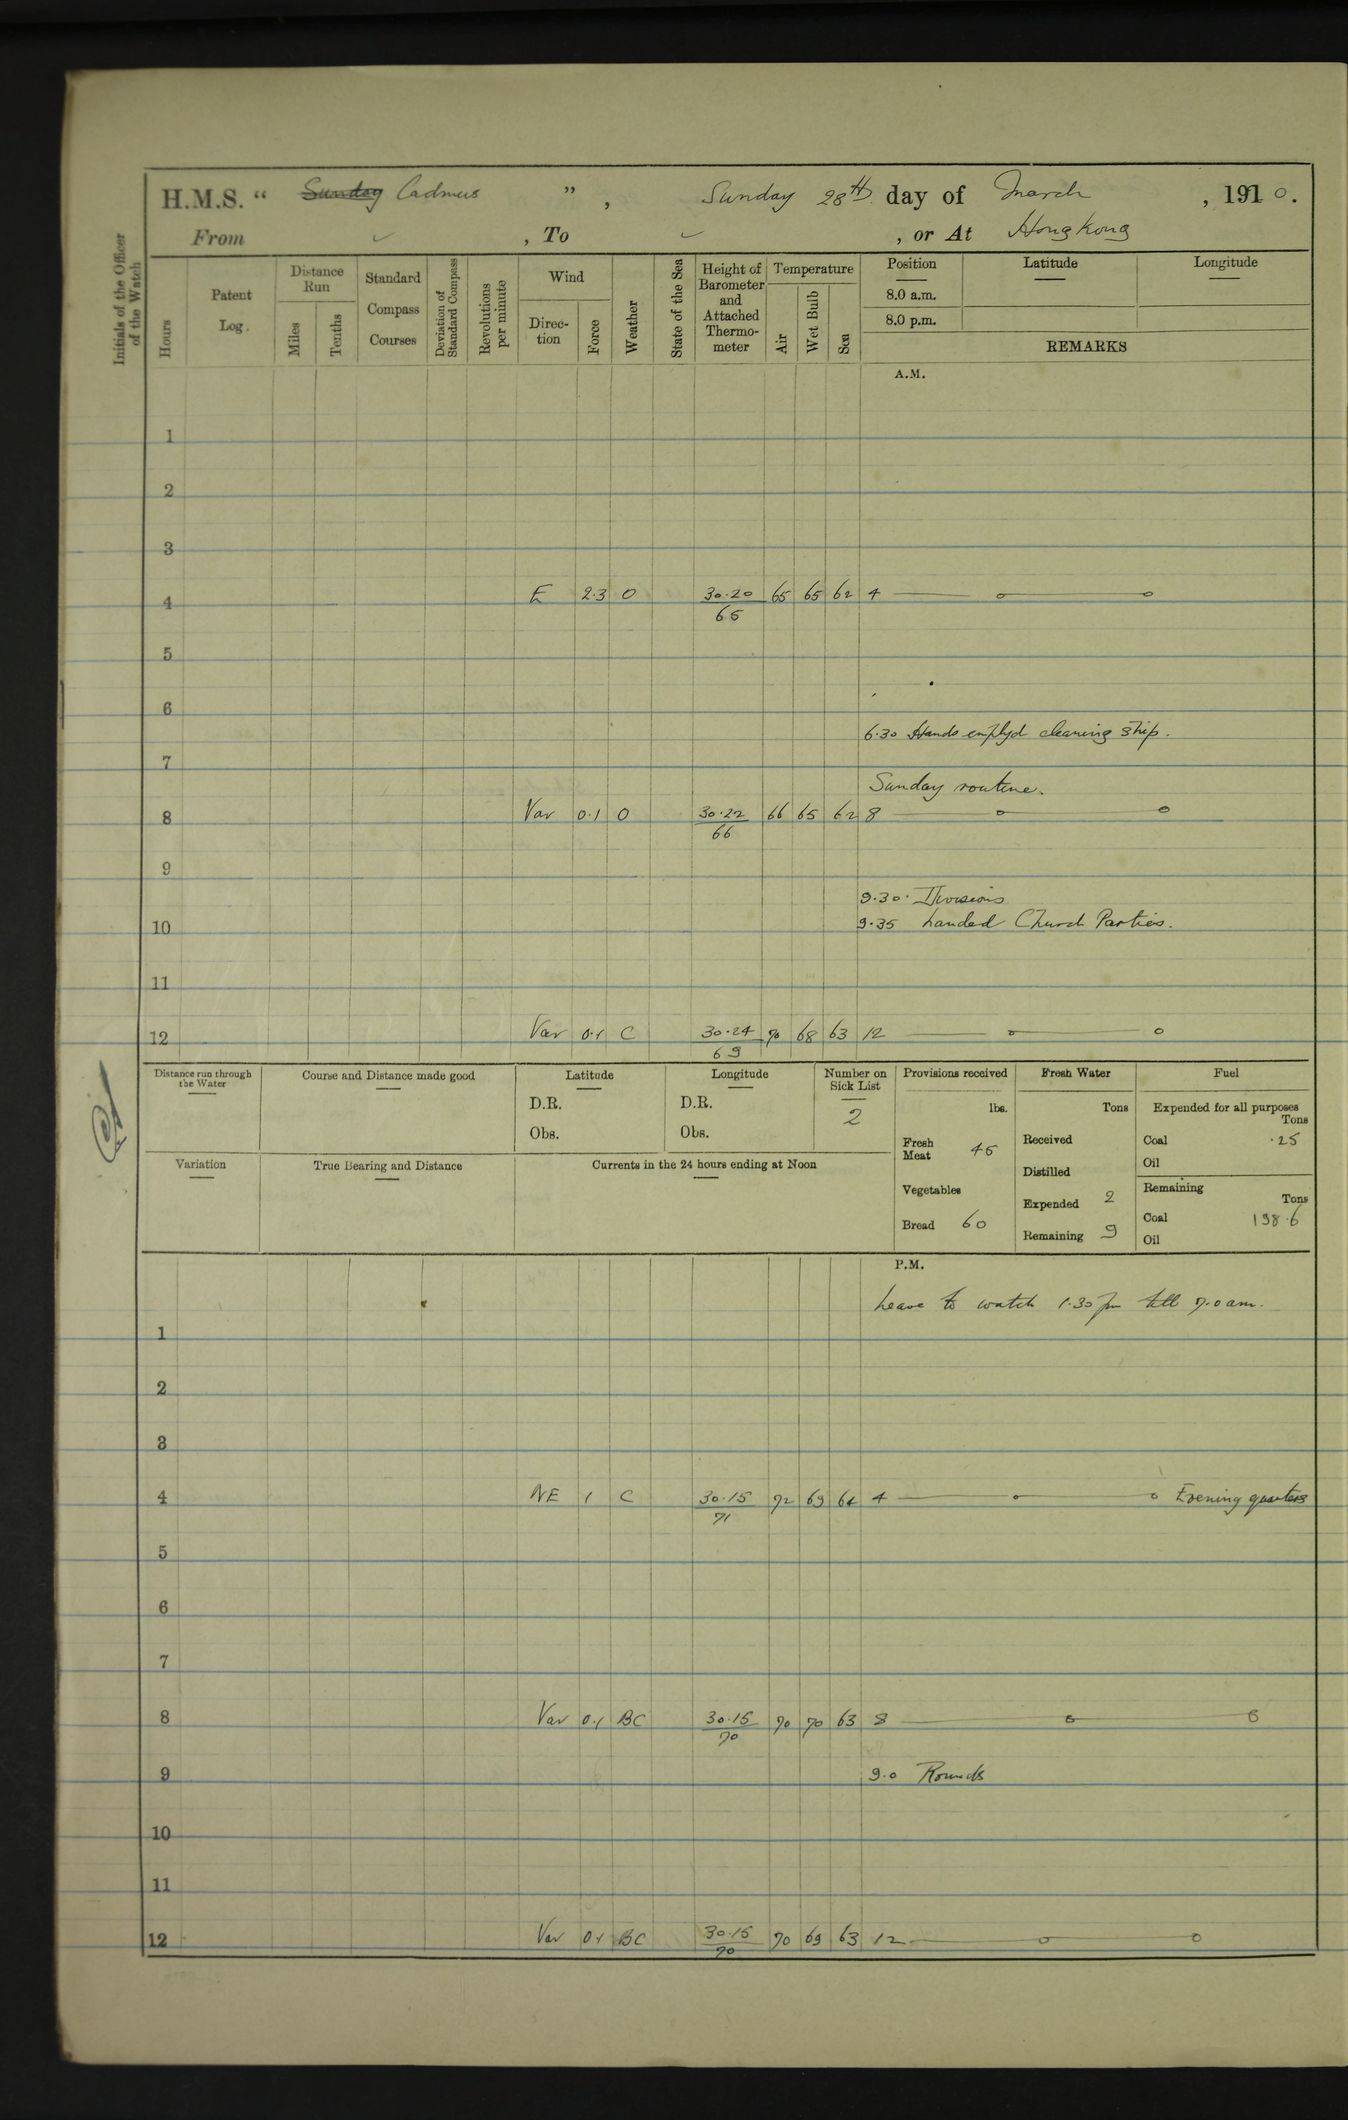 H.M.S. “ Sunday Cadmus ”, Sunday 28th day of March, 1910.
From ✓, To ✓, or At Hong Kong
Initials of the Officer of the Watch
Hours
Patent Log.
Distance Run
Miles
Tenths
Standard Compass Courses
Deviation of Standard Compass
Revolutions per minute
Wind
Direc-tion
Force
Weather
State of the Sea
Height of Barometer and Attached Thermo-meter
Temperature
Air
Wet Bulb
Sea
Position
Latitude
Longitude
8.0 a.m.
8.0 p.m.
REMARKS
A.M.
1
2
3
4 E 2.3 O 30.20 65 65 62 4 — o — o
65
5
6
6.30 Hands emplyd cleaning ship.
7
Sunday routine.
8 Var 0.1 O 30.22 66 65 62 8 — o — o
66
9
9.30 Divisions
9.35 Landed Church Parties.
10
11
12 Var 0.1 C 30.24 70 68 63 12 — o — o
69
Distance run through the Water
Course and Distance made good
Latitude
D.R.
Obs.
Longitude
D.R.
Obs.
Number on Sick List
2
Variation
True Bearing and Distance
Currents in the 24 hours ending at Noon
Provisions received
lbs.
Fresh Meat 45
Vegetables
Bread 60
Fresh Water
Tons
Received
Distilled
Expended 2
Remaining 9
Fuel
Expended for all purposes
Tons
Coal .25
Oil
Remaining
Tons
Coal 198.6
Oil
P.M.
Leave to watch 1.30 pm till 7.0 am.
1
2
3
4 NE 1 C 30.15 72 69 64 4 — o — o Evening quarters
71
5
6
7
8 Var 0.1 BC 30.15 70 70 63 8 — o — o
70
9 9.0 Rounds
10
11
12 Var 0.1 BC 30.15 70 69 63 12 — o — o
70